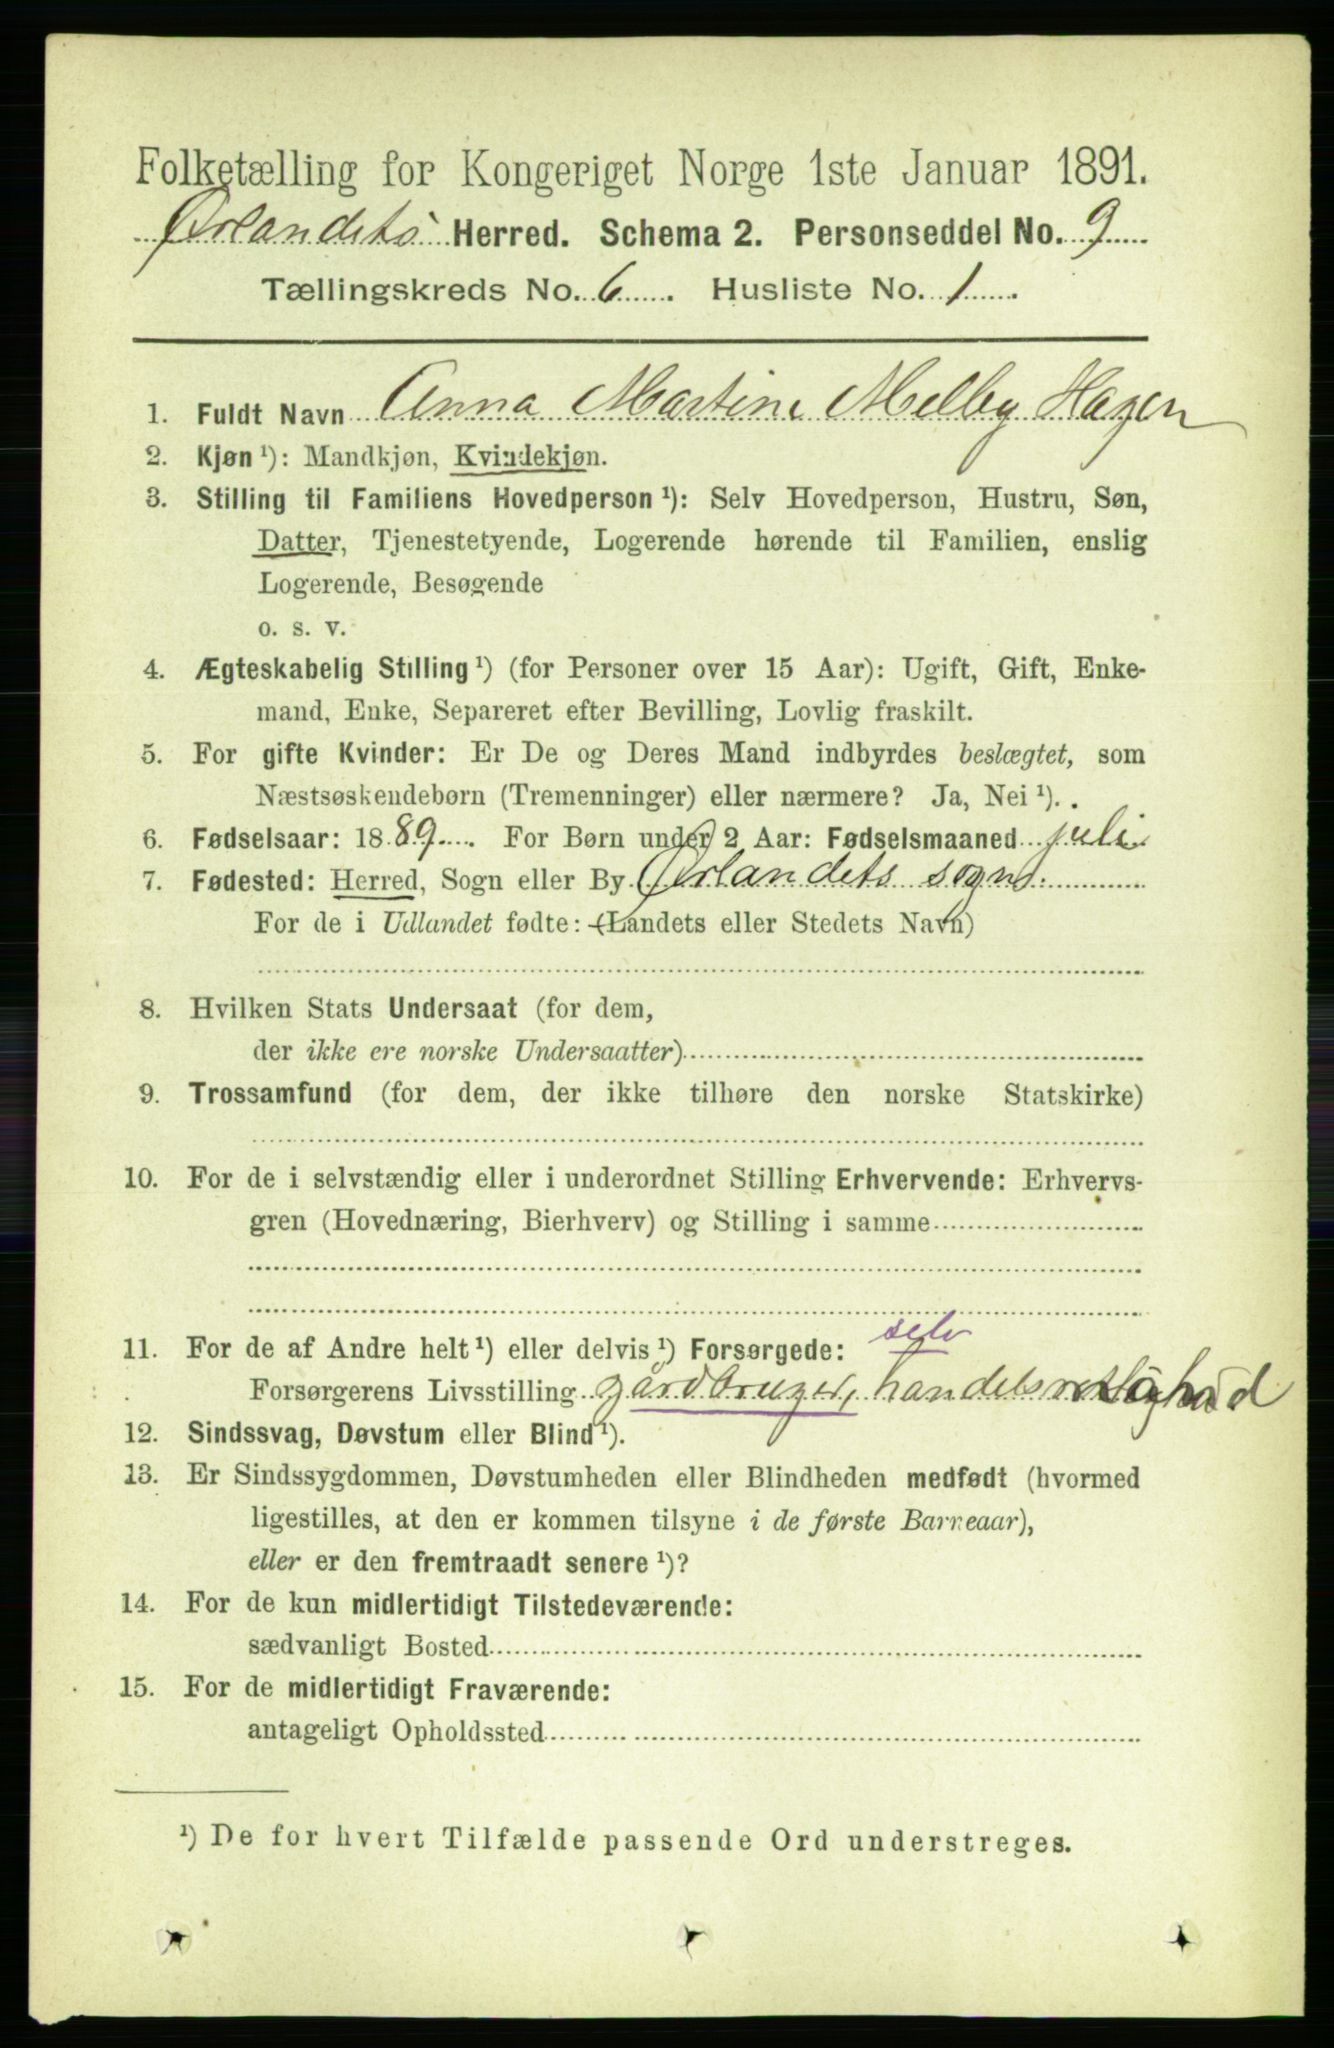 Folketælling for Kongeriget Norge 1ste Januar 1891.
Ørlandets Herred. Schema 2. Personseddel No. 9
Tællingskreds No. 6. Husliste No. 1
1. Fuldt Navn Anna Martine Melby Hagen
2. Kjøn ¹): Mandkjøn, Kvindekjøn.
3. Stilling til Familiens Hovedperson ¹): Selv Hovedperson, Hustru, Søn,
Datter, Tjenestetyende, Logerende hørende til Familien, enslig
Logerende, Besøgende
o. s. v.
4. Ægteskabelig Stilling ¹) (for Personer over 15 Aar): Ugift, Gift, Enke-
mand, Enke, Separeret efter Bevilling, Lovlig fraskilt.
5. For gifte Kvinder: Er De og Deres Mand indbyrdes beslægtet, som
Næstsøskendebørn (Tremenninger) eller nærmere? Ja, Nei ¹).
6. Fødselsaar: 1889. For Børn under 2 Aar: Fødselsmaaned juli
7. Fødested: Herred, Sogn eller By Ørlandets sogn
For de i Udlandet fødte: (Landets eller Stedets Navn)
8. Hvilken Stats Undersaat (for dem,
der ikke ere norske Undersaatter)
9. Trossamfund (for dem, der ikke tilhøre den norske Statskirke)
10. For de i selvstændig eller i underordnet Stilling Erhvervende: Erhvervs-
gren (Hovednæring, Bierhverv) og Stilling i samme
selv
11. For de af Andre helt ¹) eller delvis ¹) Forsørgede:
Forsørgerens Livsstilling gårdbruger, handelsrettighed
12. Sindssvag, Døvstum eller Blind ¹).
13. Er Sindssygdommen, Døvstumheden eller Blindheden medfødt (hvormed
ligestilles, at den er kommen tilsyne i de første Barneaar),
eller er den fremtraadt senere ¹)?
14. For de kun midlertidigt Tilstedeværende:
sædvanligt Bosted
15. For de midlertidigt Fraværende:
antageligt Opholdssted
¹) De for hvert Tilfælde passende Ord understreges.